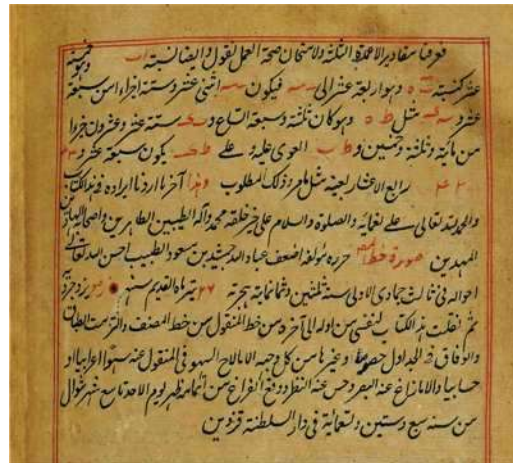 فعرفنا مقادير الاعمدة الثلثة ولامتحان صحة العمل نقول وايضا نسبة
عشر كنسبة وهو اربعة عشر الى فيكون اثنى عشر وستة اجزاء من سبعة
عشر و مثل ط ه وهو كان ثلثة وسبعة اتساع و ستة عشر وعشرون جزوا
من مائة وثلثة وخمسين و ط ب القوى عليه وعلى يكون سبعة عشر و
رابع الاعشار بعينه مثل ما مر وذلك المطلوب وهذا آخر ما اردنا ايراده فى هذا الكتاب
والحمد لله تعالى على نعمائه والصلوة والسلام على خير خلقه محمد وآله الطيبين الطاهرين واصحابه
المهديين صورة خط حرره مؤلفه اضعف عباد الله جمشيد بن مسعود الطبيب احسن الله تعالى
احواله فى ثالث جمادى الاولى سنة ثلثين وثمانمائة هجرية تيرماه القديم سنه يزدجردية
ثم نقلت هذا الكتاب لنفسى من اوله الى آخره من خط المنقول من خط المصنف والتزمت الطباق
والوفاق فى الجداول خصوصا وغيرها من كل وجه الا ما لاح السهو فى المنقول عنه سهوا اعرابيا او
حسابيا والا ما زاغ عنه البصر وحس عنه النظر ووقع الفراغ من اتمامه ظهر يوم الاحد تاسع شهر شوال
من سنه سبع وستين وتسعمائة فى دار السلطنة قزوين